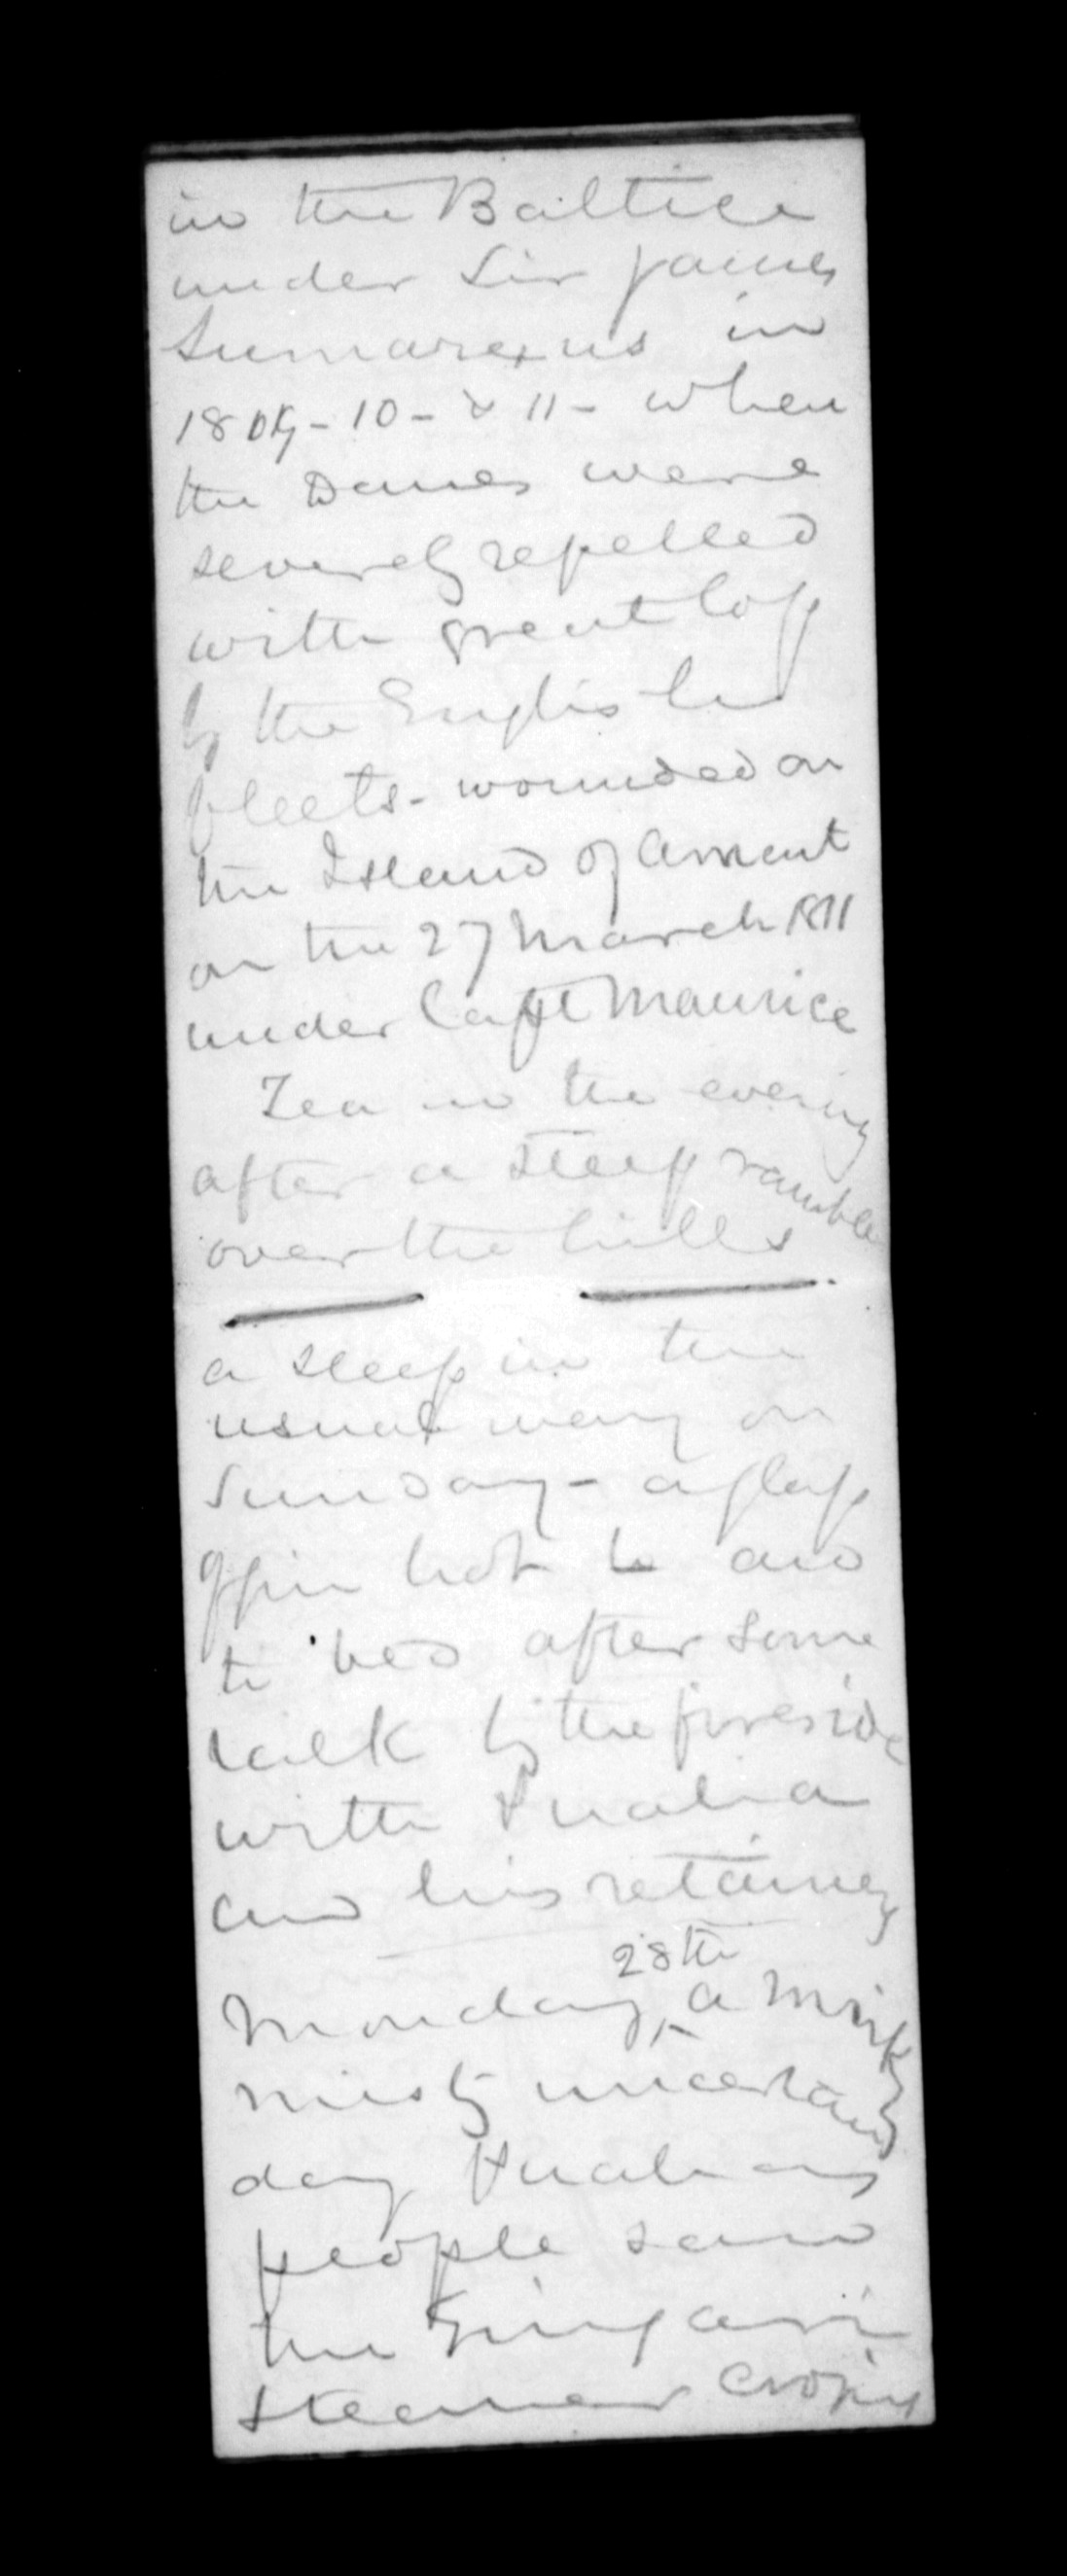 in the Baltica
under Sir James
Sumarexus in
1809-10-& 11- when
the Danes were
severely repelled
with great loss
by the English
fleets - wounded on
the Island of Amout
on the 27 March 1811
under Capt Maurice
Tea in the evening
after a steep ramble
over the hills
a sleep in the
usual way on
Sunday - a glass
of gin hot to and
to bed after some
talk by the fireside
with
and his retainers
Monday 28th a mirky
misty uncertain
day
people saw
the
steamer